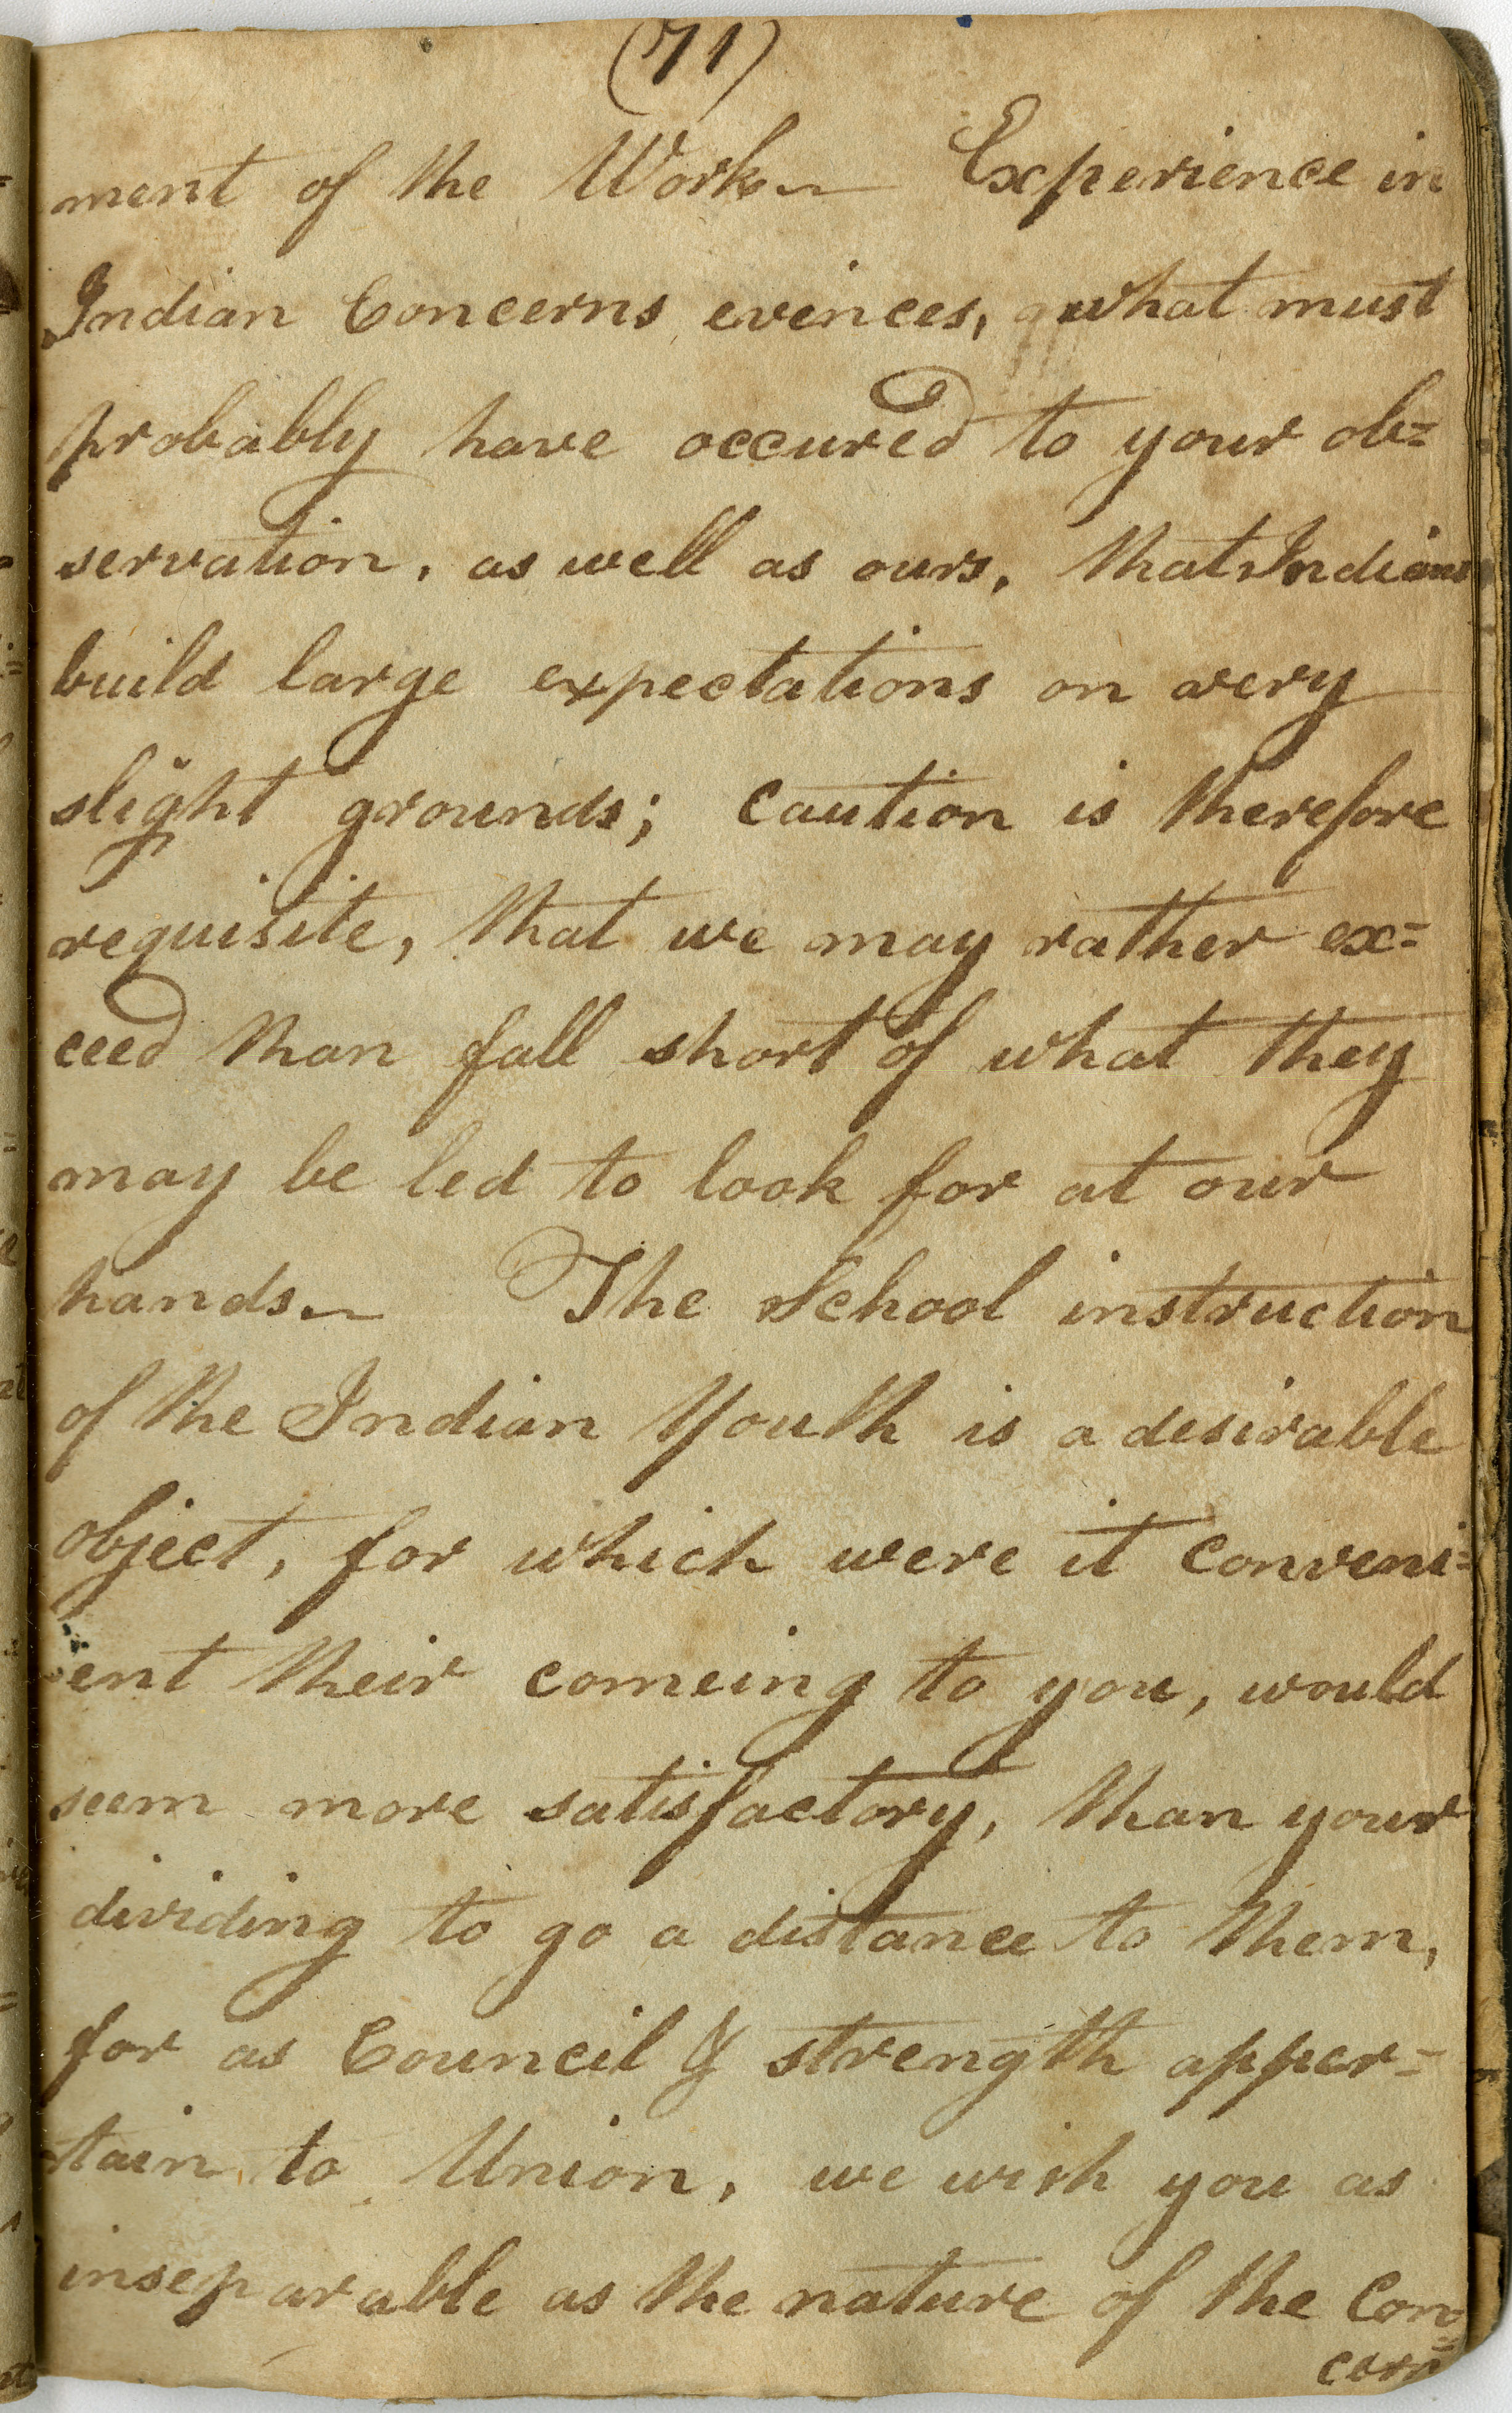 (71)
ment of the Work ~ Experience in
Indian Concerns evinces, what must
probably have occured to your ob=
servation, as well as ours, that Indians
build large expectations on very
slight grounds; caution is therefore
requisite, that we may rather ex=
ceed than fall short of what they
may be led to look for at our
hands. ~ The School instruction
of the Indian Youth is a desirable
object, for which were it conveni=
ent their comeing to you, would
seem more satisfactory, than your
dividing to go a distance to them,
for as Council & strength apper=
tain to Union, we wish you as
inseparable as the nature of the Con=
cern